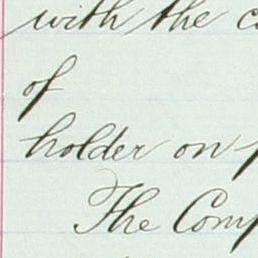 with the
of
holder on
The Comp